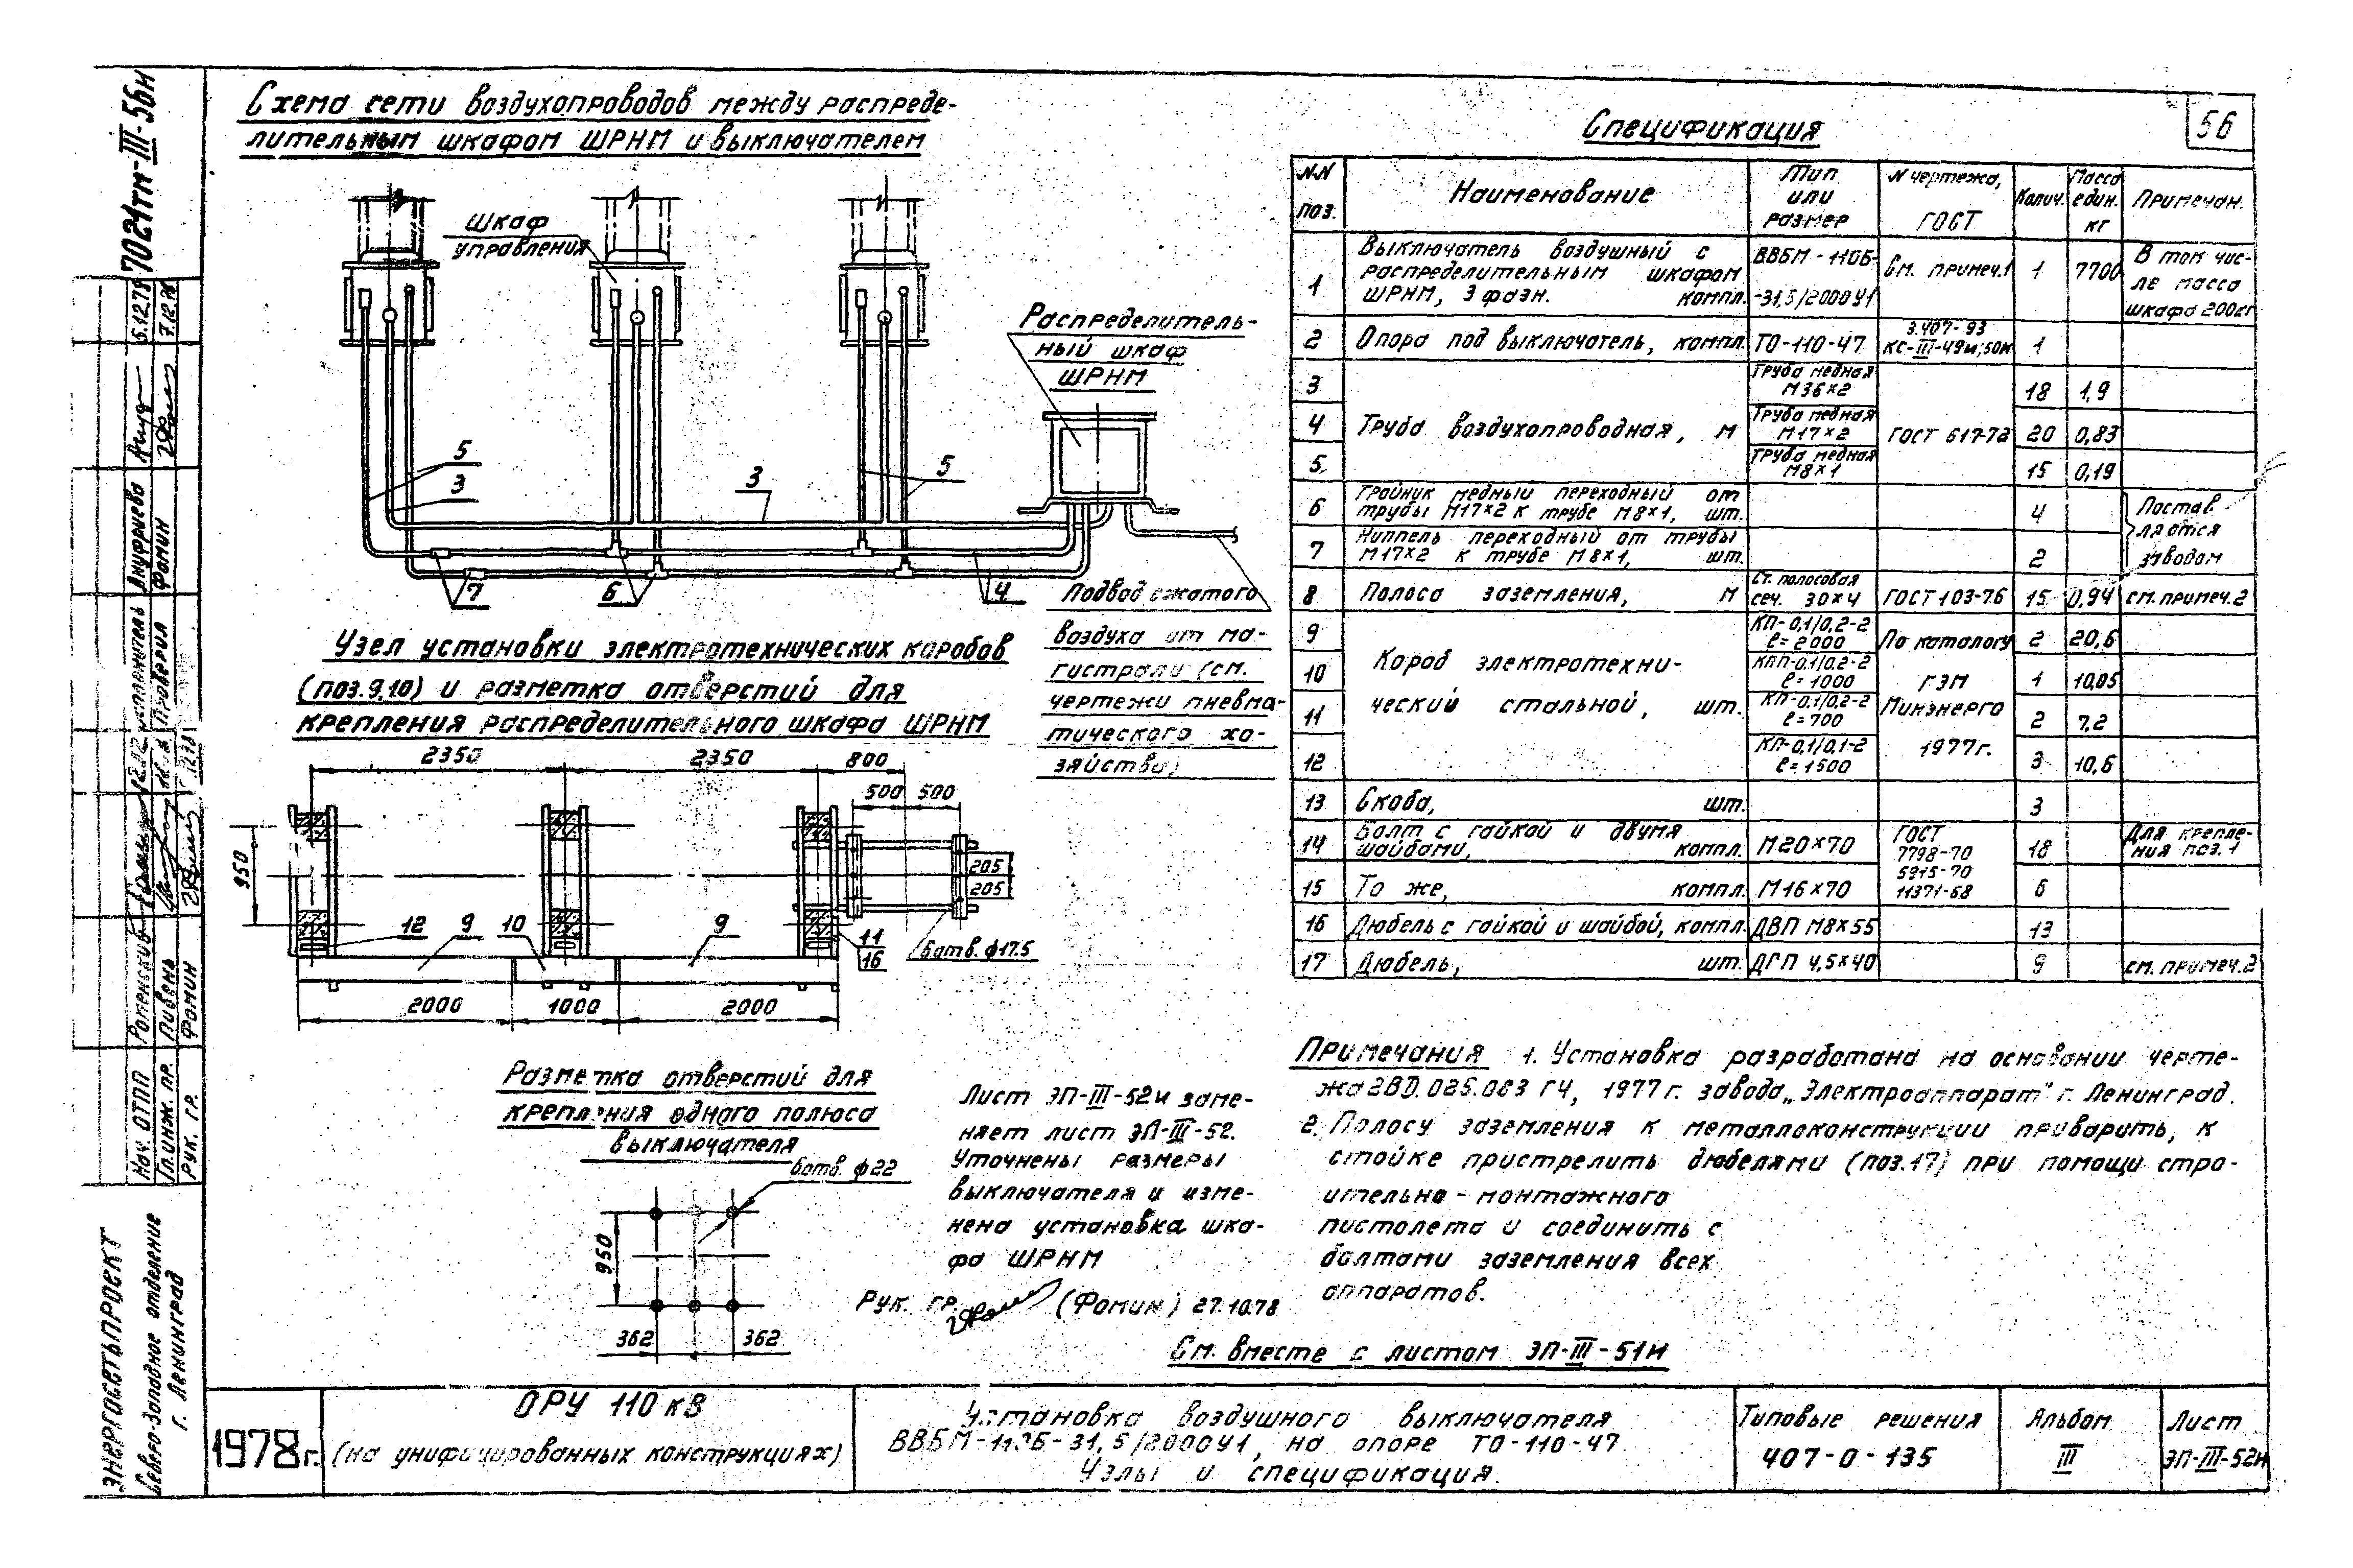 Схема сети воздухопроводов между распреде-
лительным шкафом ШРНМ и выключателем
Шкаф
управления
Распределитель-
ный шкаф
ШРНМ
5
3
3
5
7
6
4
Подвод сжатого
воздуха от ма-
гистрали (см.
чертежи пневма-
тического хо-
зяйства)
Узел установки электротехнических коробов
(поз.9,10) и разметка отверстий для
крепления распределительного шкафа ШРНМ
2350
2350
800
500
500
950
205
205
12
9
10
9
11
16
6отв. ф17.5
2000
1000
2000
Разметка отверстий для
крепления одного полюса
выключателя
6отв. ф22
950
362
362
Лист ЭП-III-52и заме-
няет лист ЭП-III-52.
Уточнены размеры
выключателя и изме-
нена установка шка-
фа ШРНМ
Рук. гр. (Фомин) 27.10.78
56
Спецификация
NN поз.
Наименование
Тип или размер
N чертежа, ГОСТ
Колич.
Масса един. кг
Примечан.
1 Выключатель воздушный с распределительным шкафом ШРНМ, 3 фазн. компл. ВВБМ-110Б-31,5/2000У1 См. примеч.1 1 7700 В том числе масса шкафа 200кг
2 Опора под выключатель, компл. ТО-110-47 3.407-93 КС-III-49и;50и 1
3 Труба медная М36×2 18 1,9
4 Труба воздухопроводная, м Труба медная М17×2 ГОСТ 617-72 20 0,83
5 Труба медная М8×1 15 0,19
6 Тройник медный переходный от трубы М17×2 к трубе М8×1, шт. 4 Поставляются заводом
7 Ниппель переходный от трубы М17×2 к трубе М8×1, шт. 2
8 Полоса заземления, м Ст. полосовая сеч. 30×4 ГОСТ 103-76 15 0,94 см. примеч.2
9 КП-0,1/0,2-2 ℓ=2000 По каталогу 2 20,6
10 Короб электротехнический стальной, шт. КПП-0,1/0,2-2 ℓ=1000 ГЭМ 1 10,05
11 КП-0,1/0,2-2 ℓ=700 Минэнерго 2 7,2
12 КП-0,1/0,1-2 ℓ=1500 1977г. 3 10,6
13 Скоба, шт. 3
14 Болт с гайкой и двумя шайбами, компл. М20×70 ГОСТ 7798-70 18 Для крепления поз. 1
15 То же, компл. М16×70 5915-70 11371-68 6
16 Дюбель с гайкой и шайбой, компл. ДВП М8×55 13
17 Дюбель, шт. ДГП 4,5×40 9 см. примеч.2
Примечания 1. Установка разработана на основании черте-
жа 2ВД.025.083 ГЧ, 1977г. завода „Электроаппарат" г. Ленинград.
2. Полосу заземления к металлоконструкции приварить, к
стойке пристрелить дюбелями (поз.17) при помощи стро-
ительно-монтажного
пистолета и соединить с
болтами заземления всех
аппаратов.
См. вместе с листом ЭП-III-51и
1978г.
ОРУ 110 кВ
(на унифицированных конструкциях)
Установка воздушного выключателя
ВВБМ-110Б-31,5/2000У1, на опоре ТО-110-47.
Узлы и спецификация.
Типовые решения
407-0-135
Альбом
III
Лист
ЭП-III-52и
7021тм-III-56и
5.12.78
7.12.78
Ануфриева
Фомин
Исполнитель
Проверил
Роменский
Пивень
Фомин
Нач. ОТПП
Гл. инж. пр.
Рук. гр.
ЭНЕРГОСЕТЬПРОЕКТ
Северо-Западное отделение
г. Ленинград